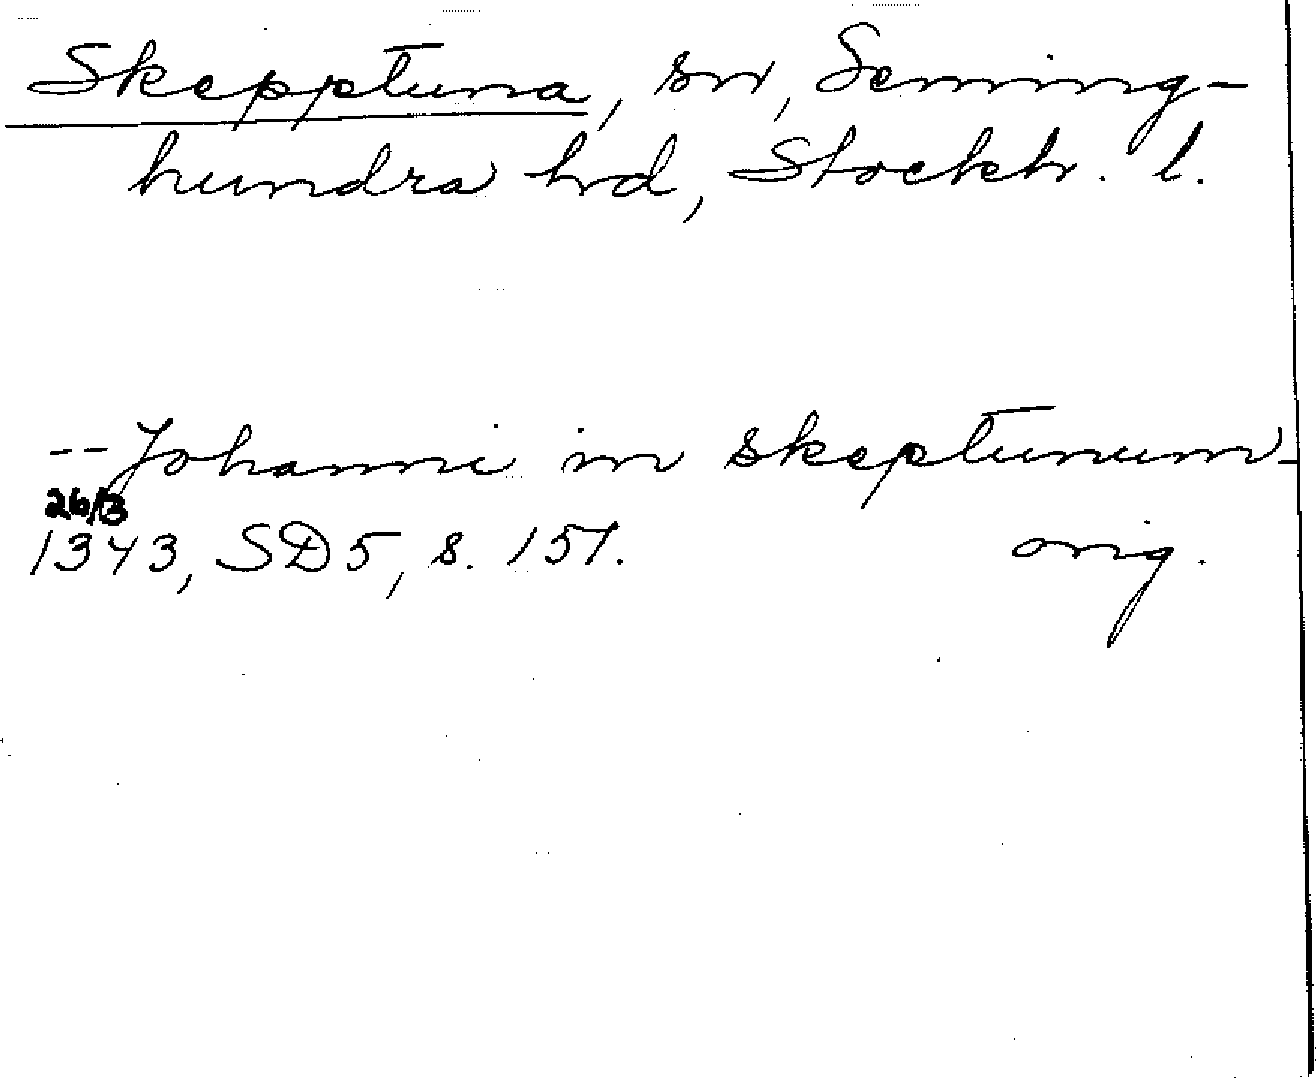 Skepptuna, sn, Seming-
hundra hd, Stockh. l.
-- Johanni in skeptunum -
26/3
1343, SD5, s. 151.
orig.